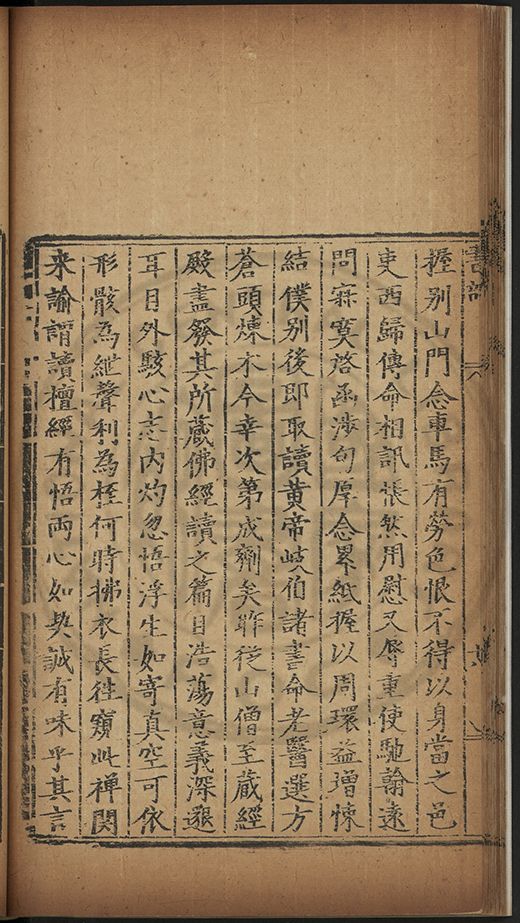 握別山門念車馬有勞色恨不得以身當之邑
吏西歸傳命相訊悵然用慰又辱重使馳翰遠
問寐寞啓函渉旬厚念累紙握以周環益增悚
結僕別後即取讀黃帝岐伯諸書命老醫選方
蒼頭煉术今幸次第成劑矣昨從山僧至藏經
殿盡發其所藏佛經讀之篇目浩蕩意義深邃
耳目外駭心志内灼忽悟浮生如寄真空可依
形骸為紲聲利為桎何時拂衣長往窺此禅関
来諭謂讀檀經有悟両心如契誠有味乎其言